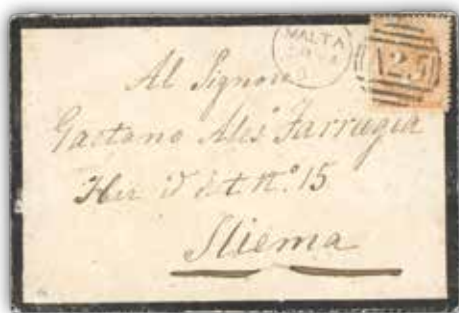 MALTA
A25
Al Signore
Gaetano Ales. Farrugia
No. 15
Sliema